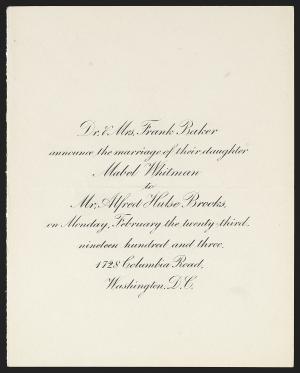 Dr. & Mrs. Frank Baker
announce the marriage of their daughter
Mabel Whitman
to
Mr. Alfred Hulse Brooks,
on Monday, February the twenty-third,
nineteen hundred and three,
1728 Columbia Road,
Washington, D.C.